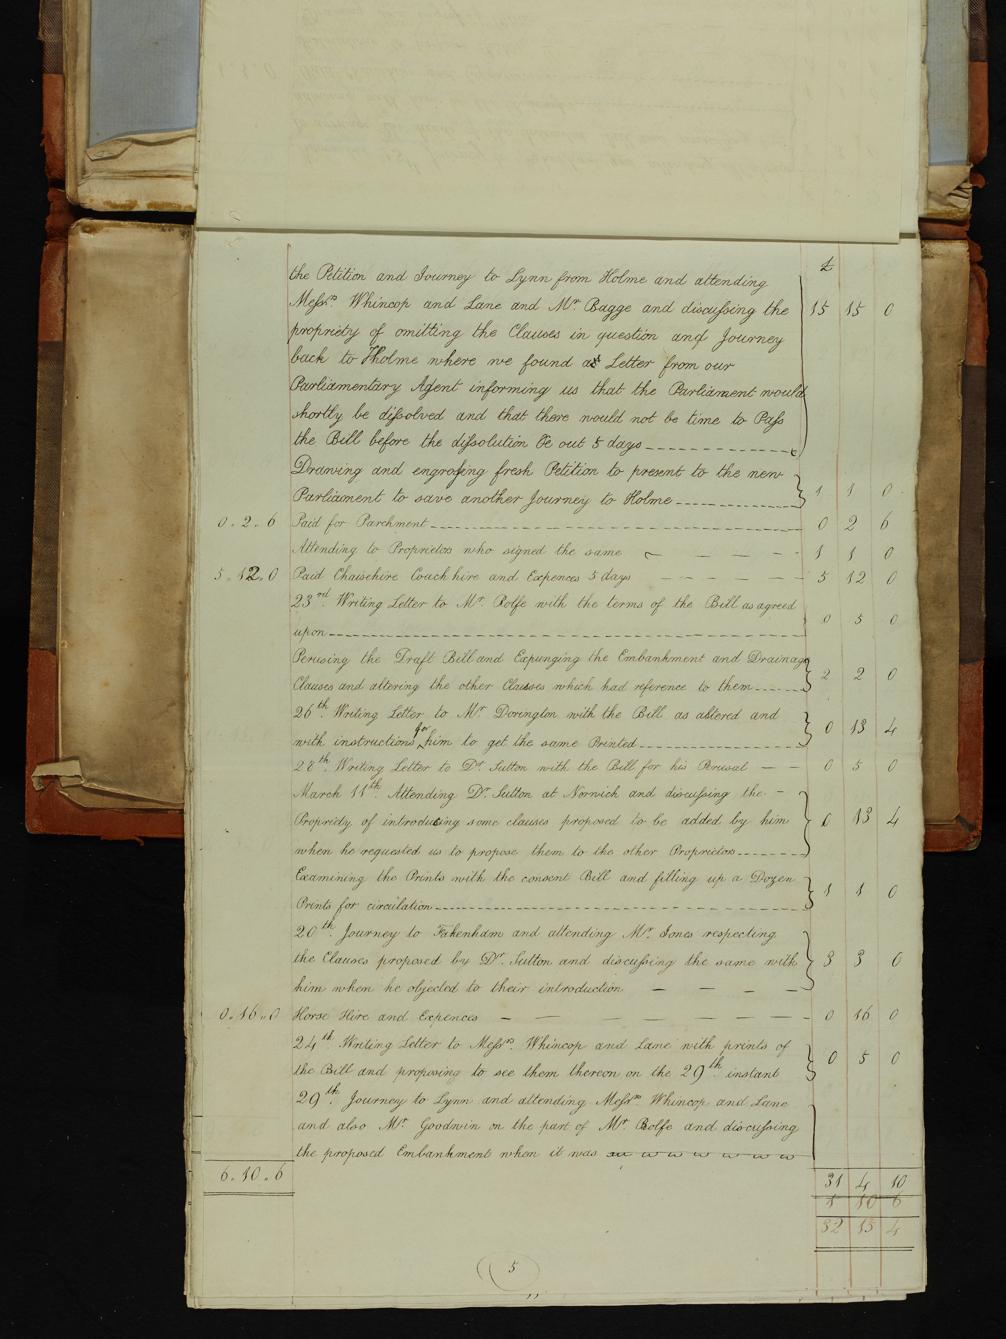 £
the Petition and Journey to Lynn from Holme and attending
Messrs. Whincop and Lane and Mr. Bagge and discussing the 15 15 0
propriety of omitting the Clauses in question and Journey
back to Holme where we found a Letter from our
Parliamentary Agent informing us that the Parliament would
shortly be dissolved and that there would not be time to Pass
the Bill before the dissolution &c out 5 days
Drawing and engrossing fresh Petition to present to the new
Parliament to save another Journey to Holme 1 1 0
0.2.6 Paid for Parchment 0 2 6
Attending to Proprietors who signed the same 1 1 0
5.12.0 Paid Chaisehire Coach hire and Expences 5 days 5 12 0
23rd. Writing Letter to Mr. Rolfe with the terms of the Bill as agreed
upon 0 5 0
Perusing the Draft Bill and Expunging the Embankment and Drainage
Clauses and altering the other Clauses which had reference to them 2 2 0
26th. Writing Letter to Mr. Dorington with the Bill as altered and
with instructions for him to get the same Printed 0 13 4
28th. Writing Letter to Dr. Sutton with the Bill for his Perusal 0 5 0
March 11th. Attending Dr. Sutton at Norwich and discussing the
Propriety of introducing some clauses proposed to be added by him 0 13 4
when he requested us to propose them to the other Proprietors
Examining the Prints with the consent Bill and filling up a Dozen
Prints for circulation 1 1 0
20th. Journey to Fakenham and attending Mr. Jones respecting
the Clauses proposed by Dr. Sutton and discussing the same with 3 3 0
him when he objected to their introduction
0.16.0 Horse Hire and Expences 0 16 0
24th. Writing Letter to Messrs. Whincop and Lane with prints of
the Bill and proposing to see them thereon on the 29th. instant 0 5 0
29th. Journey to Lynn and attending Messrs. Whincop and Lane
and also Mr. Goodwin on the part of Mr. Rolfe and discussing
the proposed Embankment when it was
6.10.6 31 4 10
1 10 6
32 15 4
5